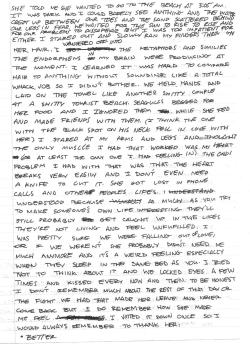 SHE TOLD ME SHE WANTED TO GO TO THE BEACH AT 3:00 AM
IT WAS DARK AND I COULD BARELY SEE ANYTHING AND THE WATER
CREPT UP BETWEEN OUR TOES AND THE SAND SCATTERED BEHIND
OUR HEELS AS WE WAITED FOR THE SUN TO RISE TO KISS AND
FOR OUR PROBLEMS TO DISAPPEAR BUT I WAS TOO IMPATIENT FOR
EITHER. I STARTED OUT AND SLOWLY RAN MY FINGERS THROUGH
HER HAIR. I THE METAPHORS AND SIMILES
THE ENDORPHINS IN MY BRAIN WERE PRODUCING AT
THE MOMENT. I LEARNED IT WAS HARD TO COMPARE
HAIR TO ANYTHING WITHOUT SOUNDING LIKE A TOTAL
WHACK JOB SO I DIDN'T BOTHER. WE HELD HANDS AND
LAID ON THE TOWEL LIKE ANOTHER SHITTY COUPLE
AT A SHITTY TOURIST BEACH. SEAGULLS BEGGED FOR
HER FOOD AND I IGNORED THEM WHILE SHE FED
AND MADE FRIENDS WITH THEM (I THINK THE ONE
WITH THE BLACK SPOT ON HIS NECK FELL IN LOVE WITH
HER) I STARED AT MY ARMS AND LEGS AND THOUGHT
THE ONLY MUSCLE I HAD THAT WORKED WAS MY HEART
OR AT LEAST THE ONE I HAD FEELING IN. THE ONLY
PROBLEM I HAD WITH THAT WAS THAT THE HEART
BREAKS VERY EASILY AND I DON'T EVEN NEED
A KNIFE TO CUT IT. SHE GOT LOST IN PHONE
CALLS AND OTHER PEOPLE'S LIVES. I
UNDERSTOOD BECAUSE AS MUCH AS YOU TRY
TO MAKE SOMEONE'S OWN LIFE INTERESTING THEY'LL
STILL PROBABLY GET CAUGHT UP IN THE LIFE
THEY'RE NOT LIVING AND FEEL UNFULFILLED. I
WAS PRETTY SURE WE WERE FALLING OUT OF LOVE,
OR IF WE WEREN'T SHE PROBABLY DIDN'T NEED ME
MUCH ANYMORE AND IT'S A WEIRD FEELING ESPECIALLY
WHEN THEY SLEEP IN THE SAME BED AS YOU. I TRIED
NOT TO THINK ABOUT IT AND WE LOCKED EYES A FEW
TIMES AND KISSED EVERY NOW AND THEN. TO BE HONEST
I DON'T REMEMBER MUCH ABOUT THE REST OF THIS DAY OR
THE FIGHT WE HAD THAT MADE HER LEAVE AND NEVER
COME BACK BUT I DO REMEMBER HOW SHE MADE
ME FEEL. I WROTE IT DOWN ONCE SO I
WOULD ALWAYS REMEMBER TO THANK HER:
"BETTER